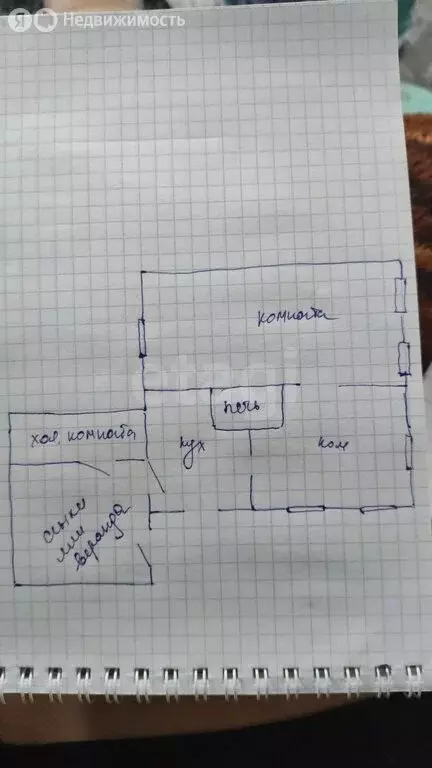 Я Недвижимость
комната
etagi
печь
хол. комната
кух
ком
сенки
или
веранда